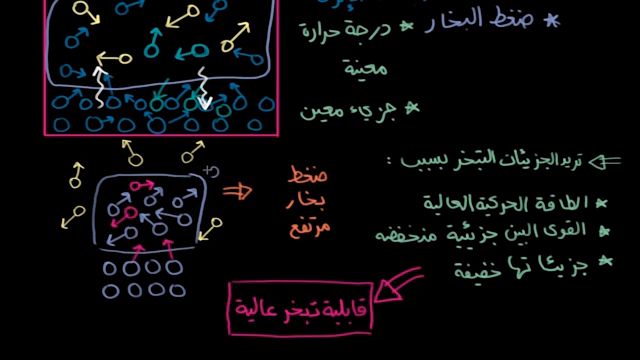 * ضغط البخار
* درجة حرارة
معينة
* جزيء معين
تريد الجزيئات التبخر بسبب :
* الطاقة الحركية العالية
* القوى البين جزيئية منخفضه
* جزيئاتها خفيفة
ضغط
بخار
مرتفع
قابلية تبخر عالية